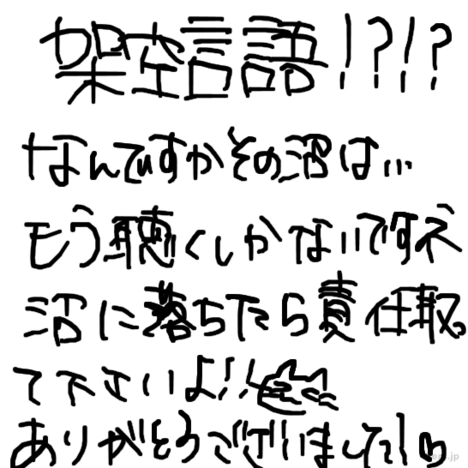 架空言語!?!?
なんですかその沼は…
もう聴くしかないですネ
沼に落ちたら責任取っ
て下さいよ!!
ありがとうございました!